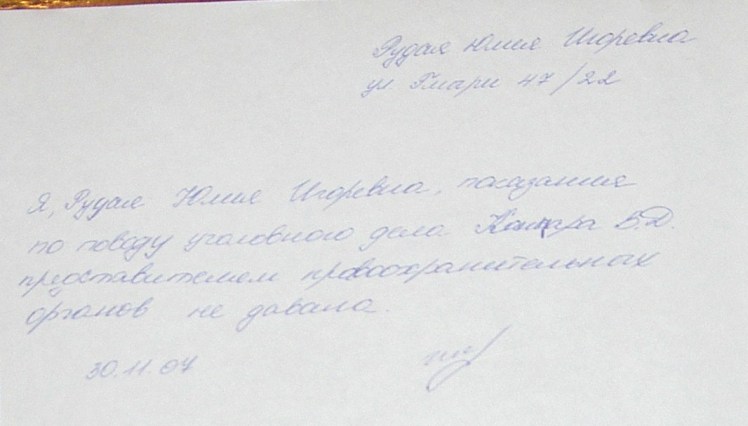 Рудая Юлия Игоревна
ул. 47/22
Я, Рудая Юлия Игоревна, показания
по поводу уголовного дела В.Д.
представителем правоохранительных
органов не давала.
30.11.07